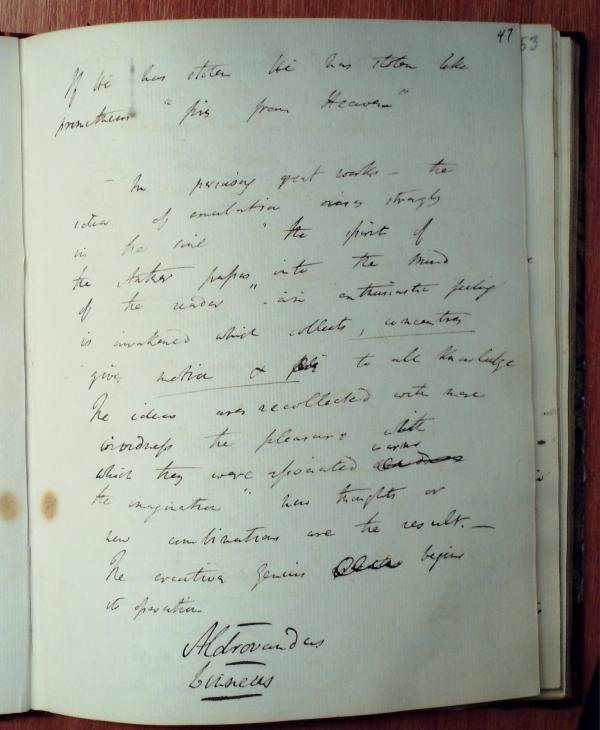 47
53
If He has stolen He has stolen like
prometheus "fire from Heaven"
— In perusing great works — the
idea of emulation arises strongly
in the soul " the spirit of
the Author passes" into the mind
of the reader - an enthusiastic feeling
is awakened which collects, concentres
gives motion & to all knowledge
The ideas are recollected with more
vividness the pleasure with
which they were associated warms
the imagination " new thoughts or
new combinations are the result. —
The creative Genius begins
its operation
Aldrovandus
Linneus